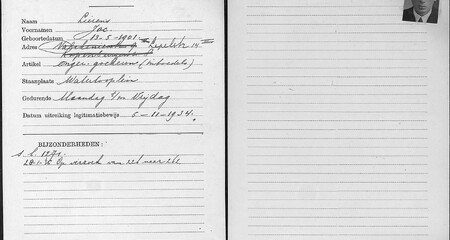 Naam Lierens
Voornamen Jac.
Geboortedatum 13-5-1901
Adres Lepelstr. 14 III
Artikel onger. goederen (inboedels)
Staanplaats Waterlooplein
Gedurende Maandag t/m Vrijdag
Datum uitreiking legitimatiebewijs 5-11-1934.
BIJZONDERHEDEN:
s. l. 1271.
28-1-35 Op verzoek van